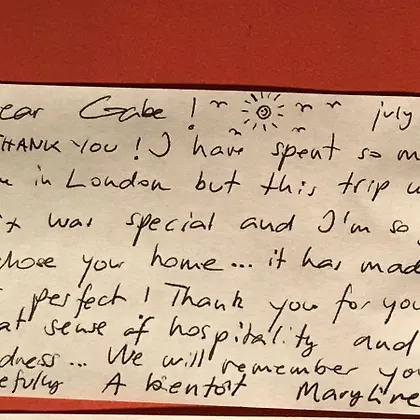 ear Gabe! july
THANK YOU! I have spent so m
in London but this trip w
t was special and I'm so
hose your home... it has made
perfect! Thank you for you
at sense of hospitality and
dness... We will remember yo
efully A bientôt Maryline